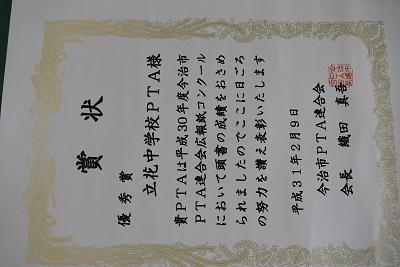 賞状
優秀賞
立花中学校PTA様
貴PTAは平成30年度今治市
PTA連合会広報紙コンクール
において頭書の成績をおさめ
られましたのでここに日ごろ
の努力を讃え表彰いたします
平成31年2月9日
今治市PTA連合会
会長 織田 真吾